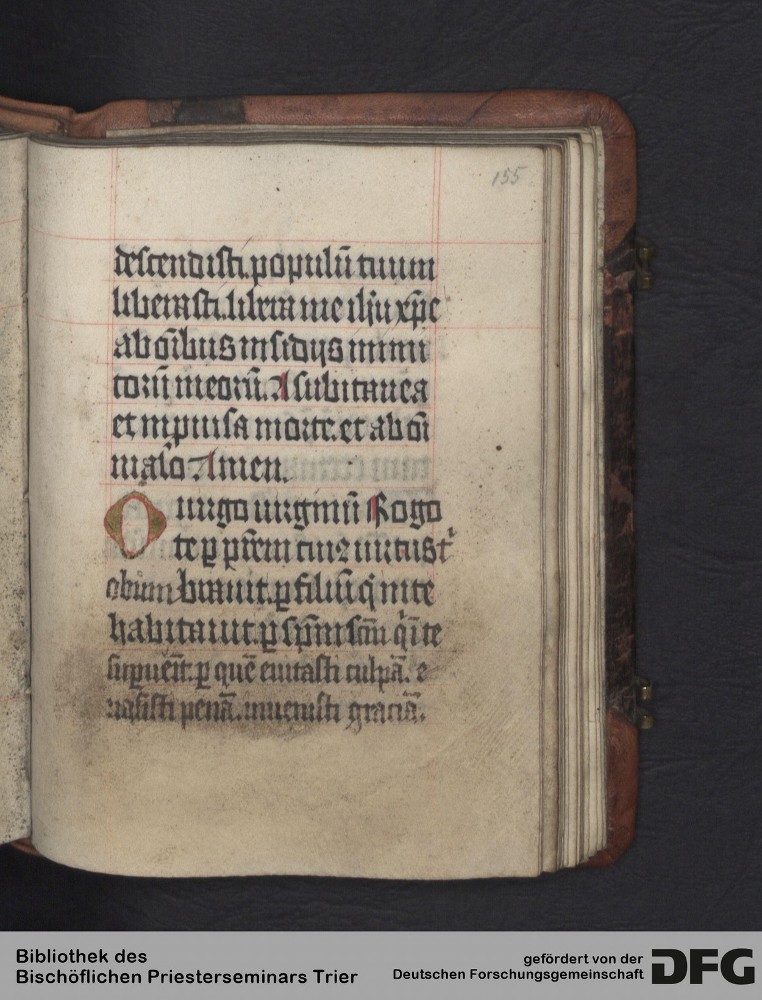 155
descendisti. populū tuum
liberasti. libera me ihu xp̄e
ab oībus insidijs inimi
corū meorū. A subitanea
et inpuisa morte. et ab oī
malo Amen.
O uirgo uirginū Rogo
te ꝑ pr̄em cui9 uirtus t
obūmbrauit. ꝑ filiū q̇ in te
habitauit. ꝑ sp̄m scm̄ q̇ ī te
supuēit. ꝑ quē euitasti culpā. e
uasisti penā. inuenisti graciā.
Bibliothek des
Bischöflichen Priesterseminars Trier
gefördert von der
Deutschen Forschungsgemeinschaft
DFG